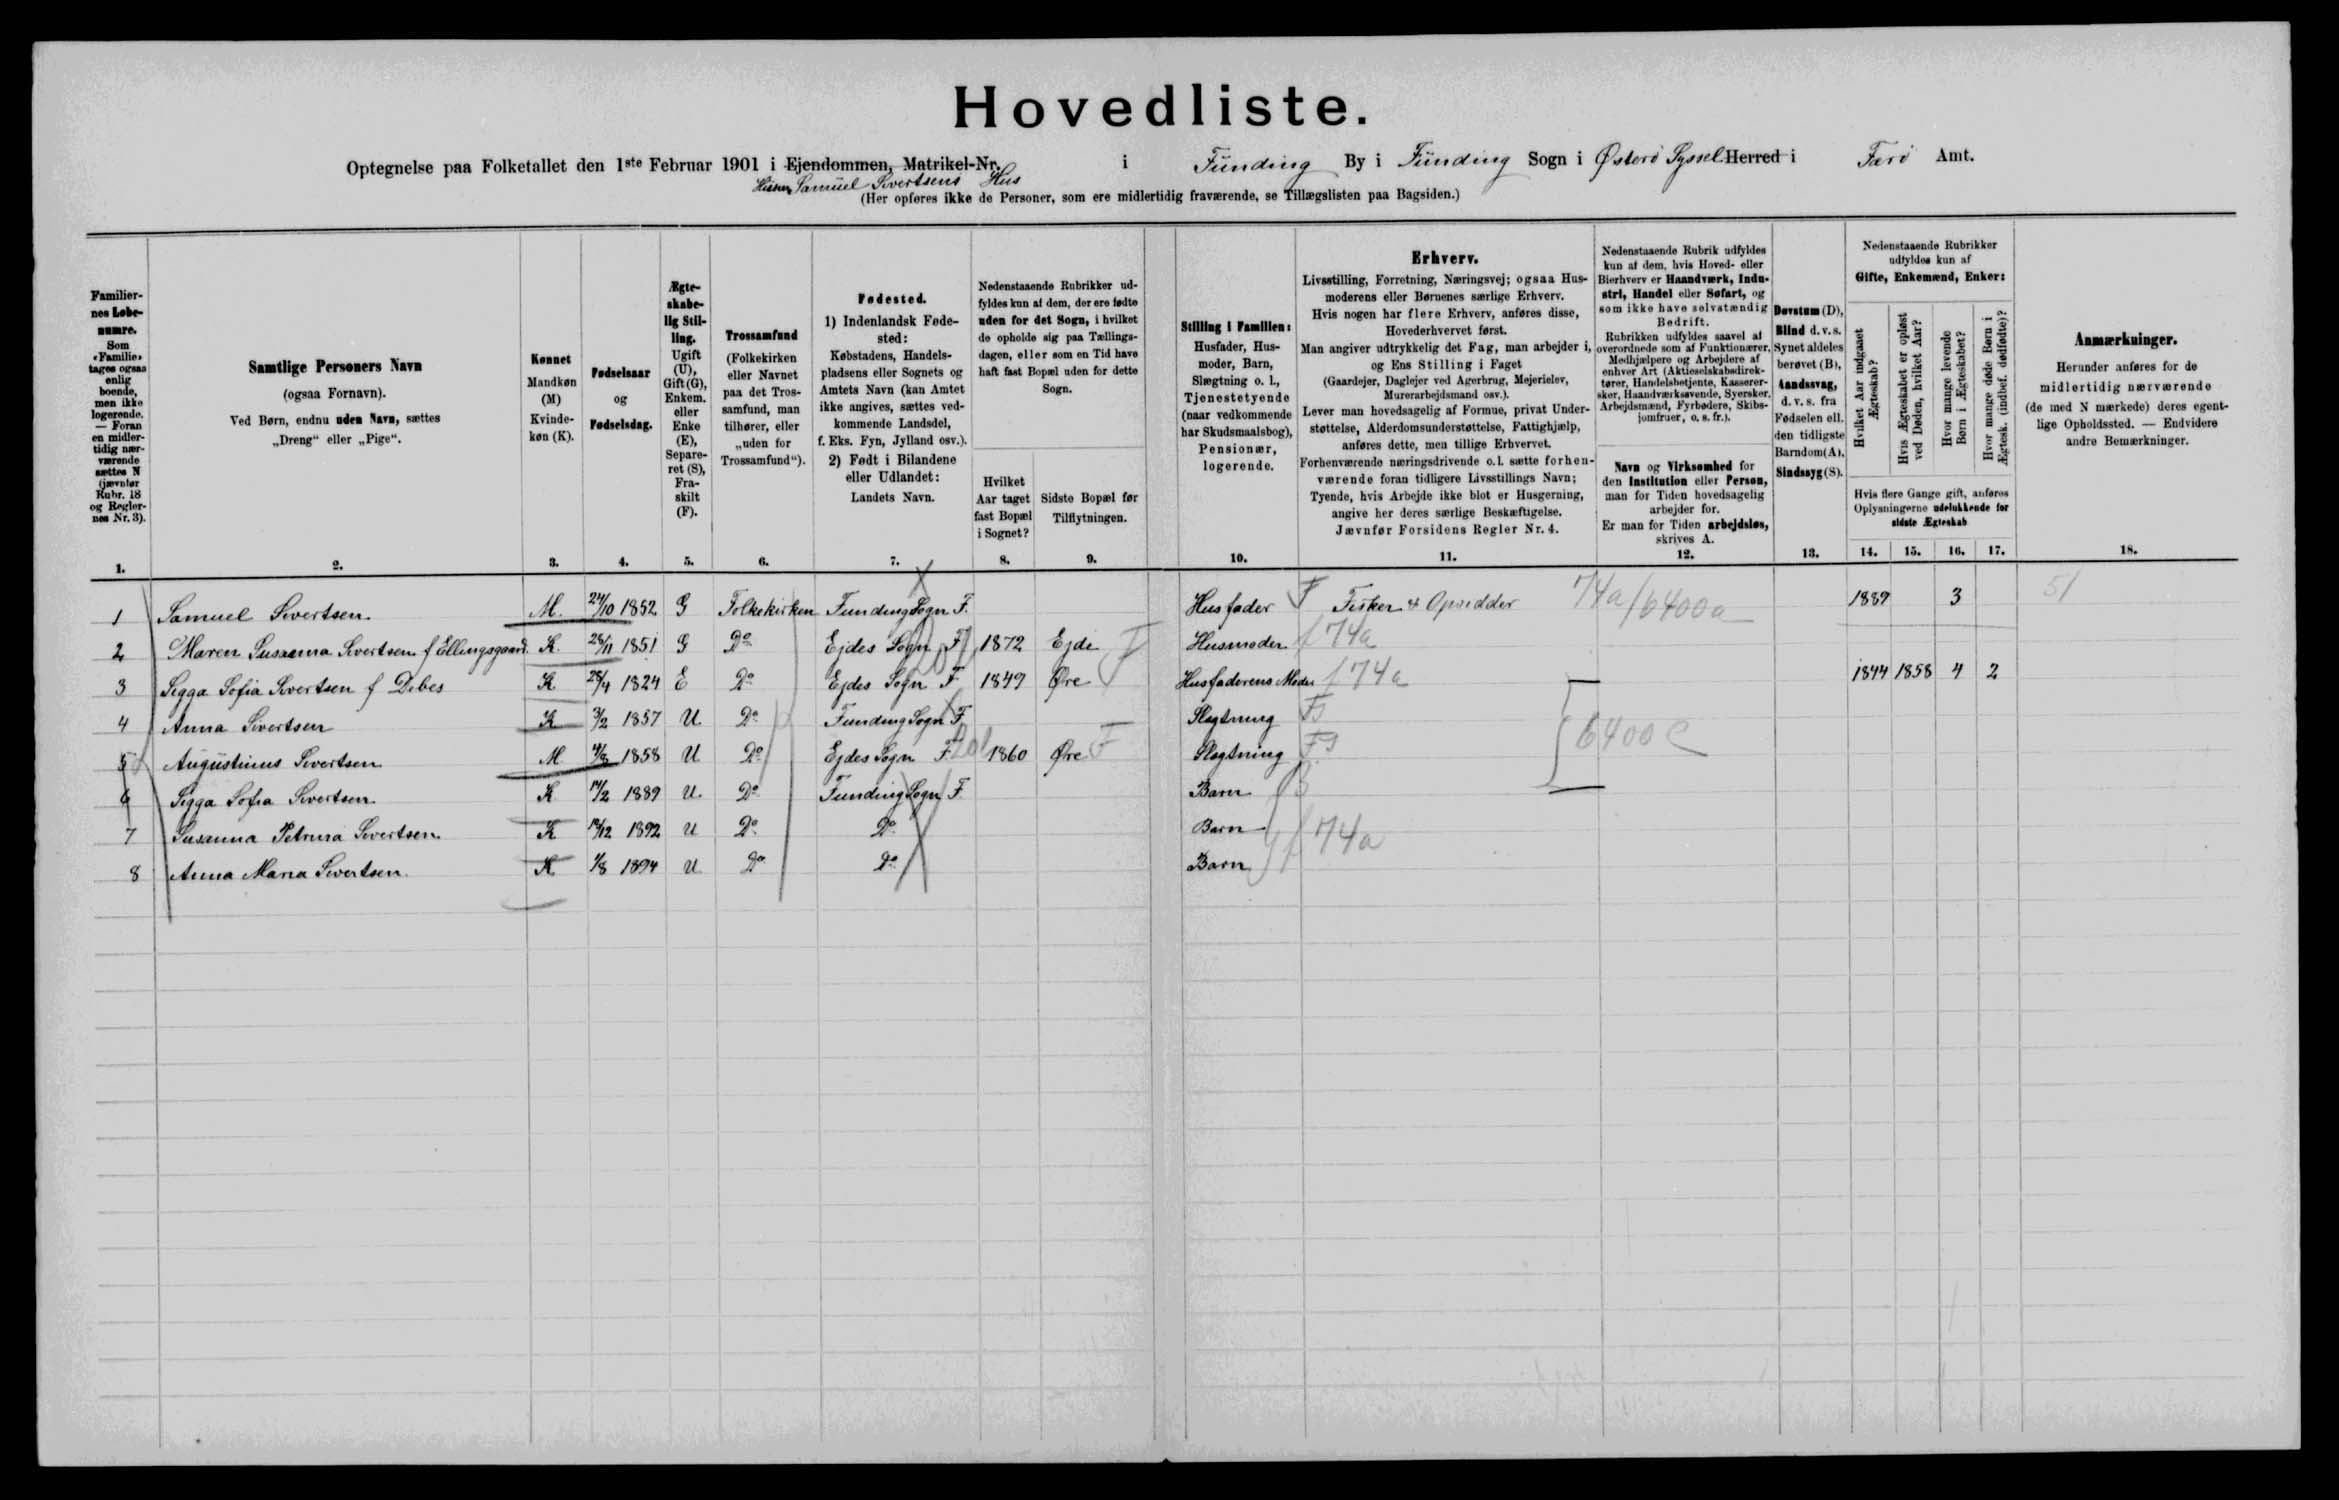 Hovedliste.
Optegnelse paa Folketallet den 1ste Februar 1901 i Ejendommen, Matrikel-Nr. i Funding By i Funding Sogn i Østerö Syssel Herred i Færö Amt.
Samuel Sivertsens Hus
(Her opføres ikke de Personer, som ere midlertidig fraværende, se Tillægslisten paa Bagsiden.)
Familiernes Løbenumre. Som «Familie» tages ogsaa enlig boende, men ikke logerende. — Foran en midlertidig nærværende sættes N (jævnfør Rubr. 18 og Reglernes Nr. 3).
Samtlige Personers Navn (ogsaa Fornavn). Ved Børn, endnu uden Navn, sættes „Dreng“ eller „Pige“.
Kønnet Mandkøn (M) Kvindekøn (K).
Fødselsaar og Fødselsdag.
Ægteskabelig Stilling. Ugift (U), Gift (G), Enkem. eller Enke (E), Separeret (S), Fraskilt (F).
Trossamfund (Folkekirken eller Navnet paa det Trossamfund, man tilhører, eller „uden for Trossamfund“).
Fødested. 1) Indenlandsk Fødested: Købstadens, Handelspladsens eller Sognets og Amtets Navn (kan Amtet ikke angives, sættes vedkommende Landsdel, f. Eks. Fyn, Jylland osv.). 2) Født i Bilandene eller Udlandet: Landets Navn.
Nedenstaaende Rubrikker udfyldes kun af dem, der ere fødte uden for det Sogn, i hvilket de opholde sig paa Tællingsdagen, eller som en Tid have haft fast Bopæl uden for dette Sogn.
Hvilket Aar taget fast Bopæl i Sognet?
Sidste Bopæl før Tilflytningen.
Stilling i Familien: Husfader, Husmoder, Barn, Slægtning o. l., Tjenestetyende (naar vedkommende har Skudsmaalsbog), Pensionær, logerende.
Erhverv. Livsstilling, Forretning, Næringsvej; ogsaa Husmoderens eller Børnenes særlige Erhverv. Hvis nogen har flere Erhverv, anføres disse, Hovederhvervet først. Man angiver udtrykkelig det Fag, man arbejder i, og Ens Stilling i Faget (Gaardejer, Daglejer ved Agerbrug, Mejerielev, Murerarbejdsmand osv.). Lever man hovedsagelig af Formue, privat Understøttelse, Alderdomsunderstøttelse, Fattighjælp, anføres dette, men tillige Erhvervet. Forhenværende næringsdrivende o. l. sætte forhenværende foran tidligere Livsstillings Navn; Tyende, hvis Arbejde ikke blot er Husgerning, angive her deres særlige Beskæftigelse. Jævnfør Forsidens Regler Nr. 4.
Nedenstaaende Rubrik udfyldes kun af dem, hvis Hoved- eller Bierhverv er Haandværk, Industri, Handel eller Søfart, og som ikke have selvstændig Bedrift. Rubrikken udfyldes saavel af overordnede som af Funktionærer, Medhjælpere og Arbejdere af enhver Art (Aktieselskabsdirektører, Handelsbetjente, Kasserersker, Haandværkssvende, Syersker, Arbejdsmænd, Fyrbødere, Skibsjomfruer, o. s. fr.).
Navn og Virksomhed for den Institution eller Person, man for Tiden hovedsagelig arbejder for. Er man for Tiden arbejdsløs, skrives A.
Døvstum (D), Blind d. v. s. Synet aldeles berøvet (B), Aandssvag, d. v. s. fra Fødselen ell. den tidligste Barndom (A), Sindssyg (S).
Nedenstaaende Rubrikker udfyldes kun af Gifte, Enkemænd, Enker:
Hvilket Aar indgaaet Ægteskab?
Hvis Ægteskabet er opløst ved Døden, hvilket Aar?
Hvor mange levende Børn i Ægteskabet?
Hvor mange døde Børn i Ægtesk. (indbef. dødfødte)?
Hvis flere Gange gift, anføres Oplysningerne udelukkende for sidste Ægteskab
Anmærkninger. Herunder anføres for de midlertidig nærværende (de med N mærkede) deres egentlige Opholdssted. — Endvidere andre Bemærkninger.
1. 2. 3. 4. 5. 6. 7. 8. 9. 10. 11. 12. 13. 14. 15. 16. 17. 18.
1 Samuel Sivertsen M. 24/10 1852 G Folkekirken Funding Sogn F. Husfader F Fisker & Opsidder 74a/6400a 1889 3 51
2 Maren Susanna Sivertsen f Ellingsgaard K. 28/11 1851 G Do Ejdes Sogn F 1872 Ejde F Husmoder f 74a
3 Sigga Sofia Sivertsen f Debes K 28/4 1824 E Do Ejdes Sogn F 1849 Øre Husfaderens Moder f 74a 1844 1858 4 2
4 Anna Sivertsen K 3/2 1857 U Do Funding Sogn F Slægtning
5 Augustinus Sivertsen M 4/8 1858 U Do Ejdes Sogn F. 1860 Øre F Slægtning 6400 c
6 Sigga Sofia Sivertsen K 14/2 1889 U. Do Funding Sogn F Barn
7 Susanna Petrina Sivertsen K 12/12 1892 U Do Do Barn f 74a
8 Anna Maria Sivertsen K 1/8 1894 U Do Do Barn